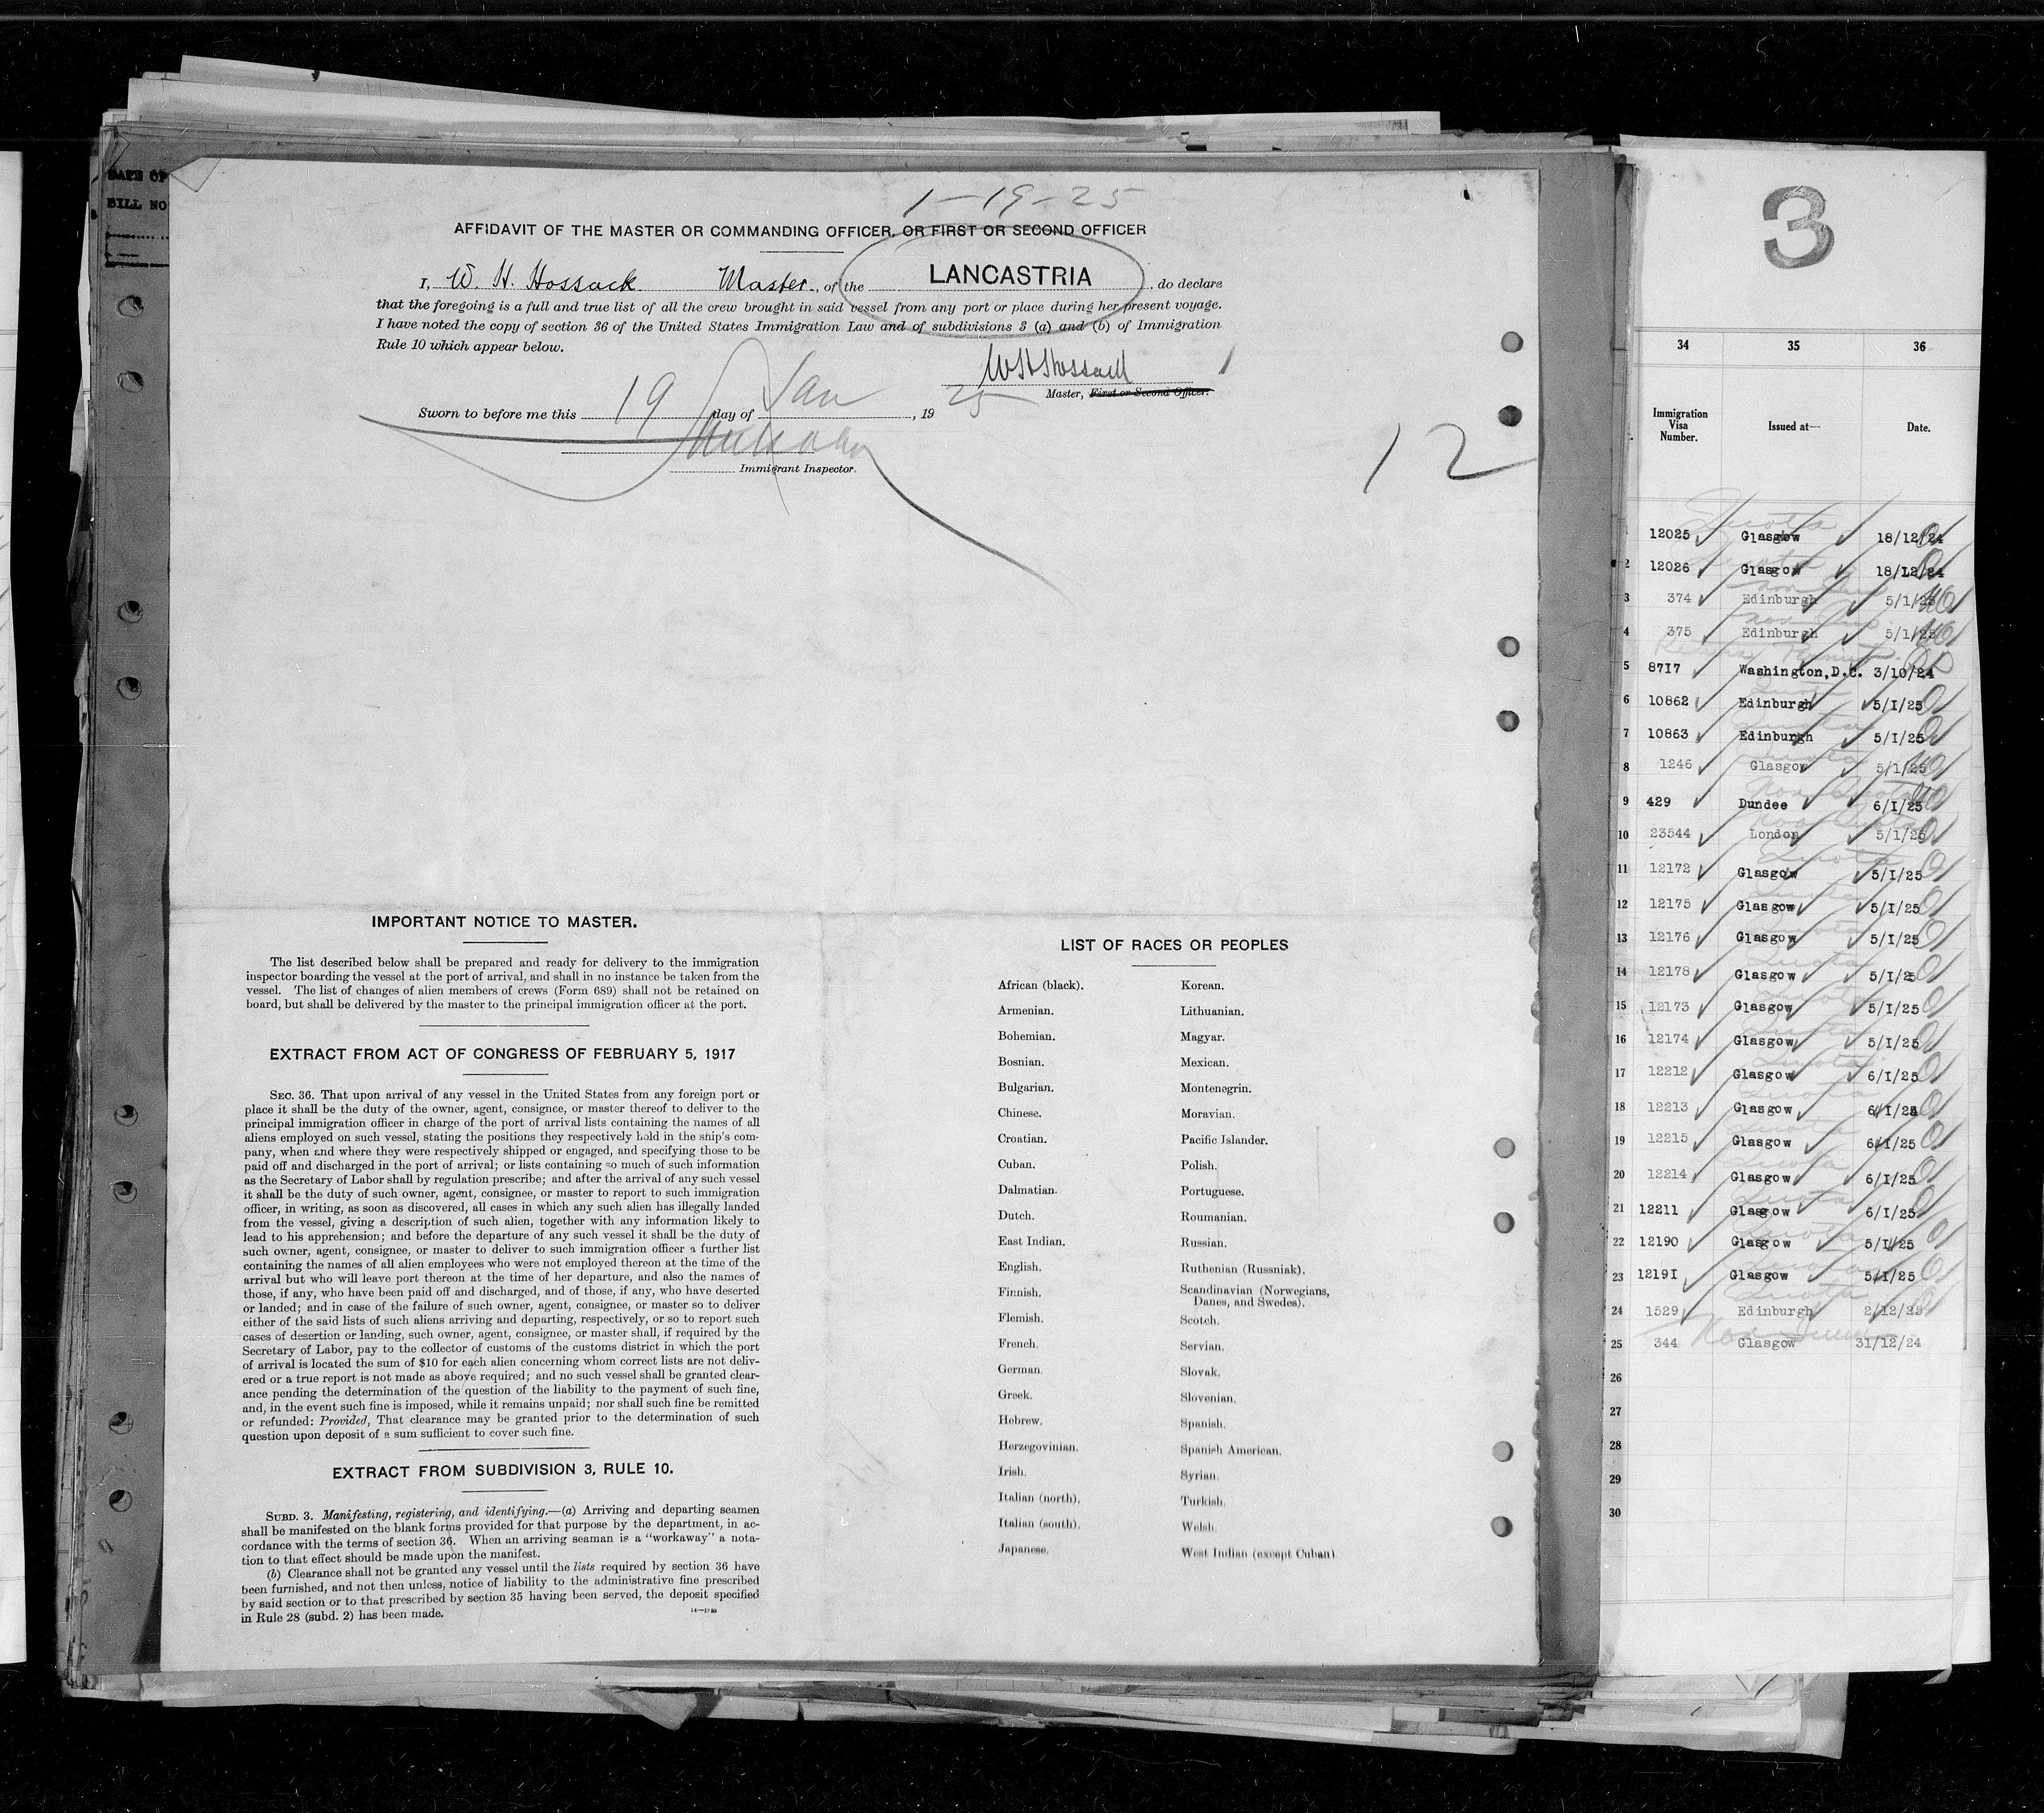 DATE OF
BILL NO
1-19-25
AFFIDAVIT OF THE MASTER OR COMMANDING OFFICER, OR FIRST OR SECOND OFFICER
I, W. H. Hossack Master, of the LANCASTRIA, do declare
that the foregoing is a full and true list of all the crew brought in said vessel from any port or place during her present voyage.
I have noted the copy of section 36 of the United States Immigration Law and of subdivisions 3 (a) and (b) of Immigration
Rule 10 which appear below.
WHHossack
Master, First or Second Officer.
Sworn to before me this 19 day of Jan, 1925
Immigrant Inspector.
12
IMPORTANT NOTICE TO MASTER.
The list described below shall be prepared and ready for delivery to the immigration
inspector boarding the vessel at the port of arrival, and shall in no instance be taken from the
vessel. The list of changes of alien members of crews (Form 689) shall not be retained on
board, but shall be delivered by the master to the principal immigration officer at the port.
EXTRACT FROM ACT OF CONGRESS OF FEBRUARY 5, 1917
SEC. 36. That upon arrival of any vessel in the United States from any foreign port or
place it shall be the duty of the owner, agent, consignee, or master thereof to deliver to the
principal immigration officer in charge of the port of arrival lists containing the names of all
aliens employed on such vessel, stating the positions they respectively hold in the ship's com-
pany, when and where they were respectively shipped or engaged, and specifying those to be
paid off and discharged in the port of arrival; or lists containing so much of such information
as the Secretary of Labor shall by regulation prescribe; and after the arrival of any such vessel
it shall be the duty of such owner, agent, consignee, or master to report to such immigration
officer, in writing, as soon as discovered, all cases in which any such alien has illegally landed
from the vessel, giving a description of such alien, together with any information likely to
lead to his apprehension; and before the departure of any such vessel it shall be the duty of
such owner, agent, consignee, or master to deliver to such immigration officer a further list
containing the names of all alien employees who were not employed thereon at the time of the
arrival but who will leave port thereon at the time of her departure, and also the names of
those, if any, who have been paid off and discharged, and of those, if any, who have deserted
or landed; and in case of the failure of such owner, agent, consignee, or master so to deliver
either of the said lists of such aliens arriving and departing, respectively, or so to report such
cases of desertion or landing, such owner, agent, consignee, or master shall, if required by the
Secretary of Labor, pay to the collector of customs of the customs district in which the port
of arrival is located the sum of $10 for each alien concerning whom correct lists are not deliv-
ered or a true report is not made as above required; and no such vessel shall be granted clear-
ance pending the determination of the question of the liability to the payment of such fine,
and, in the event such fine is imposed, while it remains unpaid; nor shall such fine be remitted
or refunded: Provided, That clearance may be granted prior to the determination of such
question upon deposit of a sum sufficient to cover such fine.
EXTRACT FROM SUBDIVISION 3, RULE 10.
SUBD. 3. Manifesting, registering, and identifying.—(a) Arriving and departing seamen
shall be manifested on the blank forms provided for that purpose by the department, in ac-
cordance with the terms of section 36. When an arriving seaman is a "workaway" a nota-
tion to that effect should be made upon the manifest.
(b) Clearance shall not be granted any vessel until the lists required by section 36 have
been furnished, and not then unless, notice of liability to the administrative fine prescribed
by said section or to that prescribed by section 35 having been served, the deposit specified
in Rule 28 (subd. 2) has been made.
LIST OF RACES OR PEOPLES
African (black).
Armenian.
Bohemian.
Bosnian.
Bulgarian.
Chinese.
Croatian.
Cuban.
Dalmatian.
Dutch.
East Indian.
English.
Finnish.
Flemish.
French.
German.
Greek.
Hebrew.
Herzegovinian.
Irish.
Italian (north).
Italian (south).
Japanese.
Korean.
Lithuanian.
Magyar.
Mexican.
Montenegrin.
Moravian.
Pacific Islander.
Polish.
Portuguese.
Roumanian.
Russian.
Ruthenian (Russniak).
Scandinavian (Norwegians,
Danes, and Swedes).
Scotch.
Servian.
Slovak.
Slovenian.
Spanish.
Spanish American.
Syrian.
Turkish.
Welsh.
West Indian (except Cuban).
3
34 35 36
Immigration Visa Number. Issued at— Date.
1 12025 Glasgow 18/12/24
2 12026 Glasgow 18/12/24
3 374 Edinburgh 5/1/25
4 375 Edinburgh 5/1/25
5 8717 Washington,D.C. 3/10/24
6 10862 Edinburgh 5/I/25
7 10863 Edinburgh 5/I/25
8 1246 Glasgow 5/1/25
9 429 Dundee 6/I/25
10 23544 London 5/1/25
11 12172 Glasgow 5/I/25
12 12175 Glasgow 5/I/25
13 12176 Glasgow 5/I/25
14 12178 Glasgow 5/I/2
15 12173 Glasgow 5/I/25
16 12174 Glasgow 5/I/25
17 12212 Glasgow 6/I/25
18 12213 Glasgow 6/I/25
19 12215 Glasgow 6/I/25
20 12214 Glasgow 6/I/25
21 12211 Glasgow 6/I/25
22 12190 Glasgow 5/I/25
23 1219I Glasgow 5/I/25
24 1529 Edinburgh 2/12/25
25 344 Glasgow 31/12/24
26
27
28
29
30